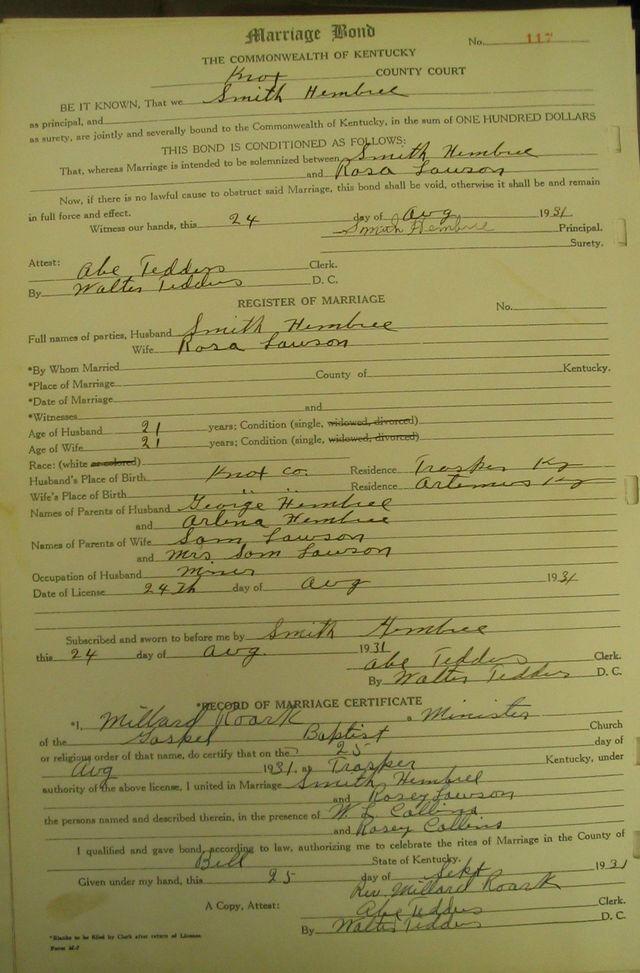 Marriage Bond
No. 117
THE COMMONWEALTH OF KENTUCKY
Knox COUNTY COURT
BE IT KNOWN, That we Smith Hembree
as principal, and
as surety, are jointly and severally bound to the Commonwealth of Kentucky, in the sum of ONE HUNDRED DOLLARS
THIS BOND IS CONDITIONED AS FOLLOWS:
That, whereas Marriage is intended to be solemnized between Smith Hembree
and Rosa Lawson
Now, if there is no lawful cause to obstruct said Marriage, this bond shall be void, otherwise it shall be and remain
in full force and effect.
Witness our hands, this 24 day of Aug 1931
Smith Hembree Principal.
Surety.
Attest: Abe Tedders Clerk.
By Walter Tedders D. C.
REGISTER OF MARRIAGE
No.
Full names of parties, Husband Smith Hembree
Wife Rosa Lawson
*By Whom Married
*Place of Marriage County of Kentucky.
*Date of Marriage
*Witnesses and
Age of Husband 21 years; Condition (single, widowed, divorced)
Age of Wife 21 years; Condition (single, widowed, divorced)
Race: (white or colored)
Husband's Place of Birth Knox Co. Residence Trosper Ky
Wife's Place of Birth " " Residence Artemus Ky
Names of Parents of Husband George Hembree
and Arlena Hembree
Names of Parents of Wife Sam Lawson
and Mrs Sam Lawson
Occupation of Husband Miner
Date of License 24th day of Aug 1931
Subscribed and sworn to before me by Smith Hembree
this 24 day of Aug. 1931
Abe Tedders Clerk.
By Walter Tedders D. C.
*RECORD OF MARRIAGE CERTIFICATE
*I, Millard Roark a Minister
of the Gospel Baptist Church
or religious order of that name, do certify that on the 25 day of
Aug 1931, at Trosper Kentucky, under
authority of the above license, I united in Marriage Smith Hembree
and Rosey Lawson
the persons named and described therein, in the presence of W. L. Collings
and Rosey Collins
I qualified and gave bond, according to law, authorizing me to celebrate the rites of Marriage in the County of
Bell State of Kentucky.
Given under my hand, this 25 day of Sept 1931
Rev. Millard Roark
A Copy, Attest: Abe Tedders Clerk.
By Walter Tedders D. C.
*Blanks to be filled by Clerk after return of License.